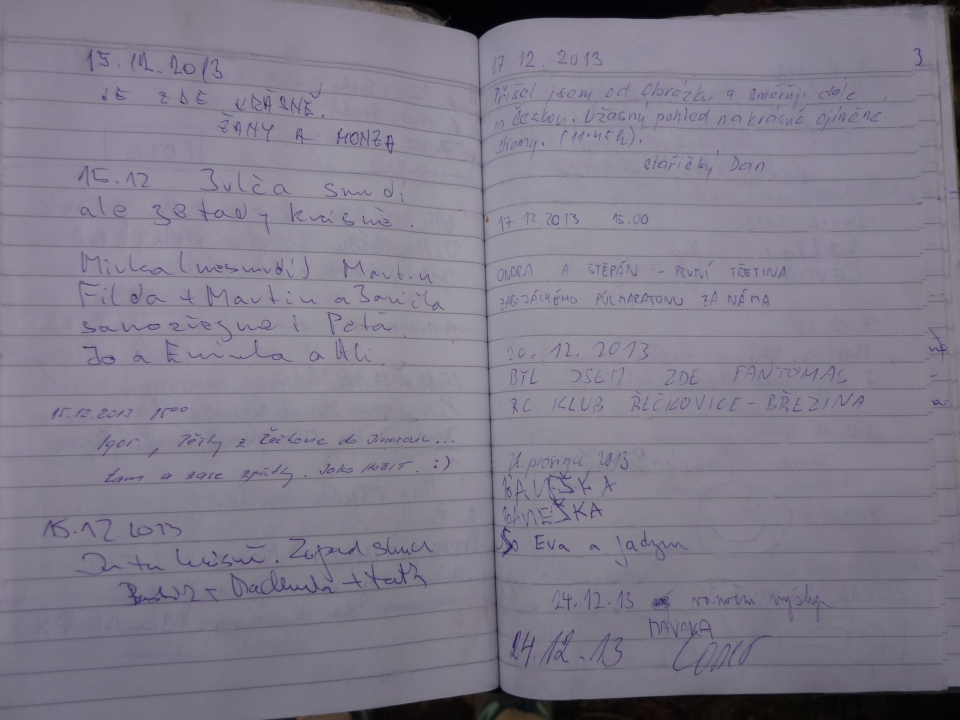 15.12.2013
JE ZDE KRÁSNĚ.
ŽANY A HONZA
15.12 Julča smrdí
ale je tady krásně.
Mivka (nesmrdí) Martin
Filda + Martin a
samozřejmě i Peťa
Jo a Eminka a Ali.
15.12.2013 1500
Igor, Pěšky z Řečkovic do
tam a zase zpátky. Jako HOBIT. :)
15.12 2013
Je tu krásně. Západ slunce
+ + táta
3
17.12.2013
Přišel jsem od Obrázku a směřuji dále
na Českou. Úžasný pohled na krásné ojíněné
stromy. (11.45h).
staříčký Dan
17.12.2013 15.00
ONDRA A ŠTĚPÁN - PRVNÍ TŘETINA
ZABIJÁCKÉHO PŮLMARATONU ZA NÁMA
20.12.2013
BYL JSEM ZDE FANTOMAS
RC KLUB ŘEČKOVICE-BŘEZINA
prosinec 2013
ANEŠKA
Eva a
24.12.13 vánoční výšlap
24.12.13